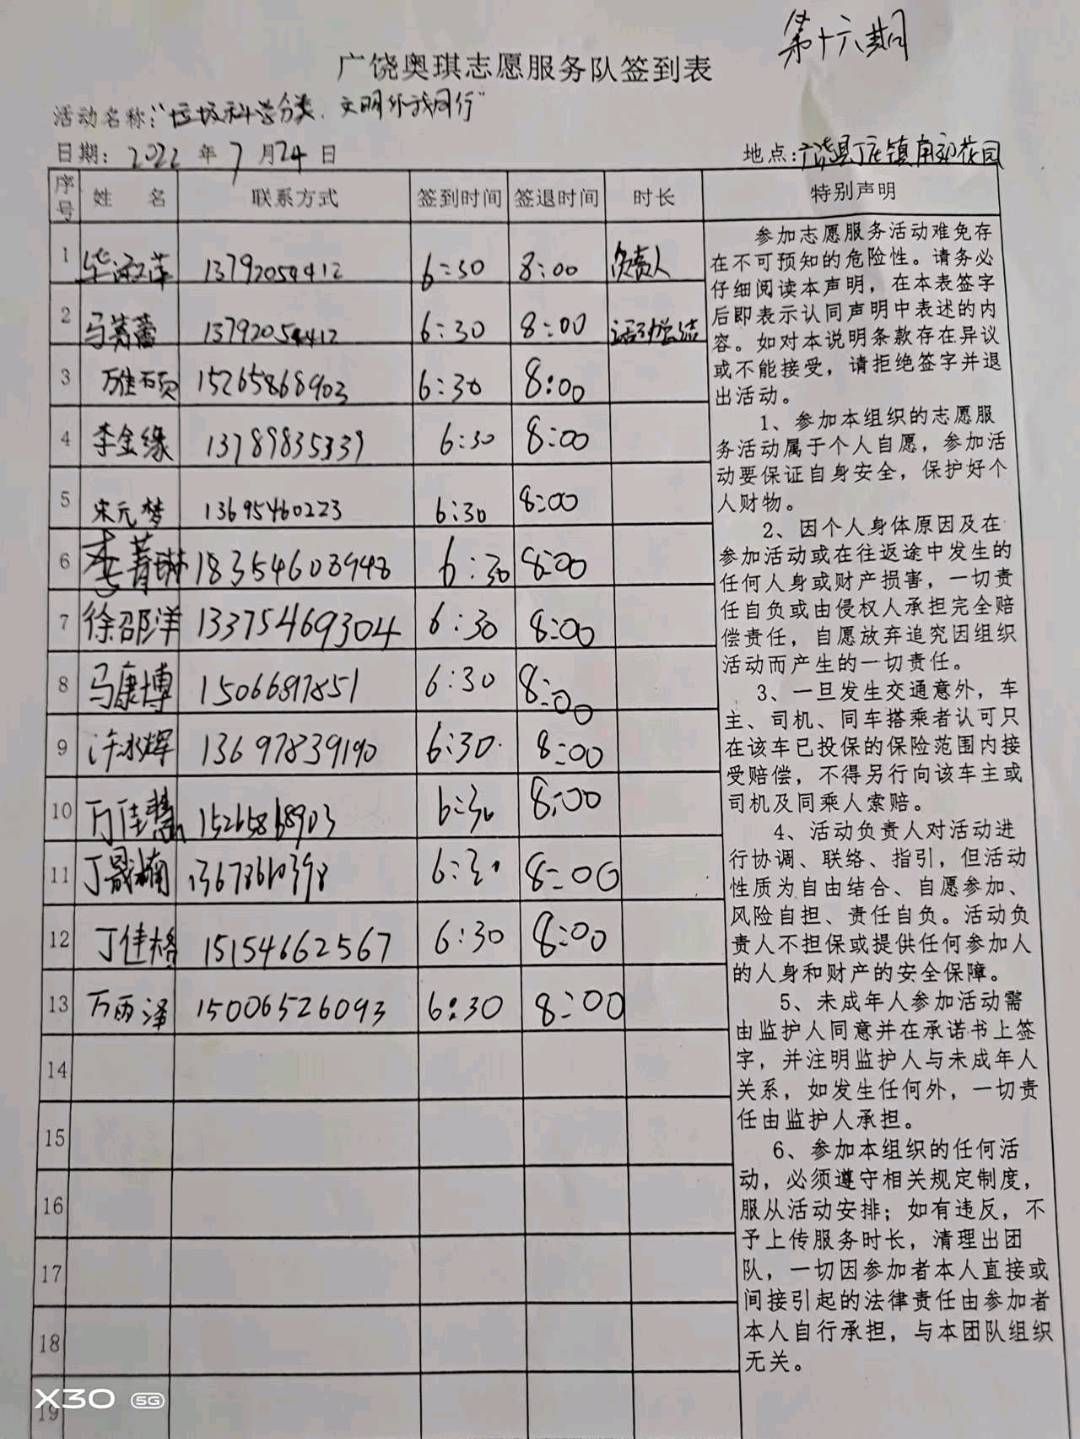 第十六期
广饶奥琪志愿服务队签到表
活动名称:"垃圾科学分类,文明环我同行"
日期: 2022 年 7 月 24 日 地点:广饶县丁庄镇南初花园
序号 姓 名 联系方式 签到时间 签退时间 时长 特别声明
1 13792054412 6:30 8:00 负责人
2 马菁蕾 13792054412 6:30 8:00 活动总结
3 万佳硕 15265868903 6:30 8:00
4 李金缘 13789835339 6:30 8:00
5 宋元梦 13695460223 6:30 8:00
6 李菁琳 18354608948 6:30 8:00
7 徐邵洋 13375469304 6:30 8:00
8 马康博 15066817851 6:30 8:00
9 许冰辉 13697839190 6:30 8:00
10 万佳慧 15265868903 6:30 8:00
11 丁晟楠 13678610398 6:30 8:00
12 丁佳格 15154662567 6:30 8:00
13 万雨泽 15006526093 6:30 8:00
14
15
16
17
18
19
参加志愿服务活动难免存
在不可预知的危险性。请务必
仔细阅读本声明,在本表签字
后即表示认同声明中表述的内
容。如对本说明条款存在异议
或不能接受,请拒绝签字并退
出活动。
1、参加本组织的志愿服
务活动属于个人自愿,参加活
动要保证自身安全,保护好个
人财物。
2、因个人身体原因及在
参加活动或在往返途中发生的
任何人身或财产损害,一切责
任自负或由侵权人承担完全赔
偿责任,自愿放弃追究因组织
活动而产生的一切责任。
3、一旦发生交通意外,车
主、司机、同车搭乘者认可只
在该车已投保的保险范围内接
受赔偿,不得另行向该车主或
司机及同乘人索赔。
4、活动负责人对活动进
行协调、联络、指引,但活动
性质为自由结合、自愿参加、
风险自担、责任自负。活动负
责人不担保或提供任何参加人
的人身和财产的安全保障。
5、未成年人参加活动需
由监护人同意并在承诺书上签
字,并注明监护人与未成年人
关系,如发生任何外,一切责
任由监护人承担。
6、参加本组织的任何活
动,必须遵守相关规定制度,
服从活动安排;如有违反,不
予上传服务时长,清理出团
队,一切因参加者本人直接或
间接引起的法律责任由参加者
本人自行承担,与本团队组织
无关。
X30 5G